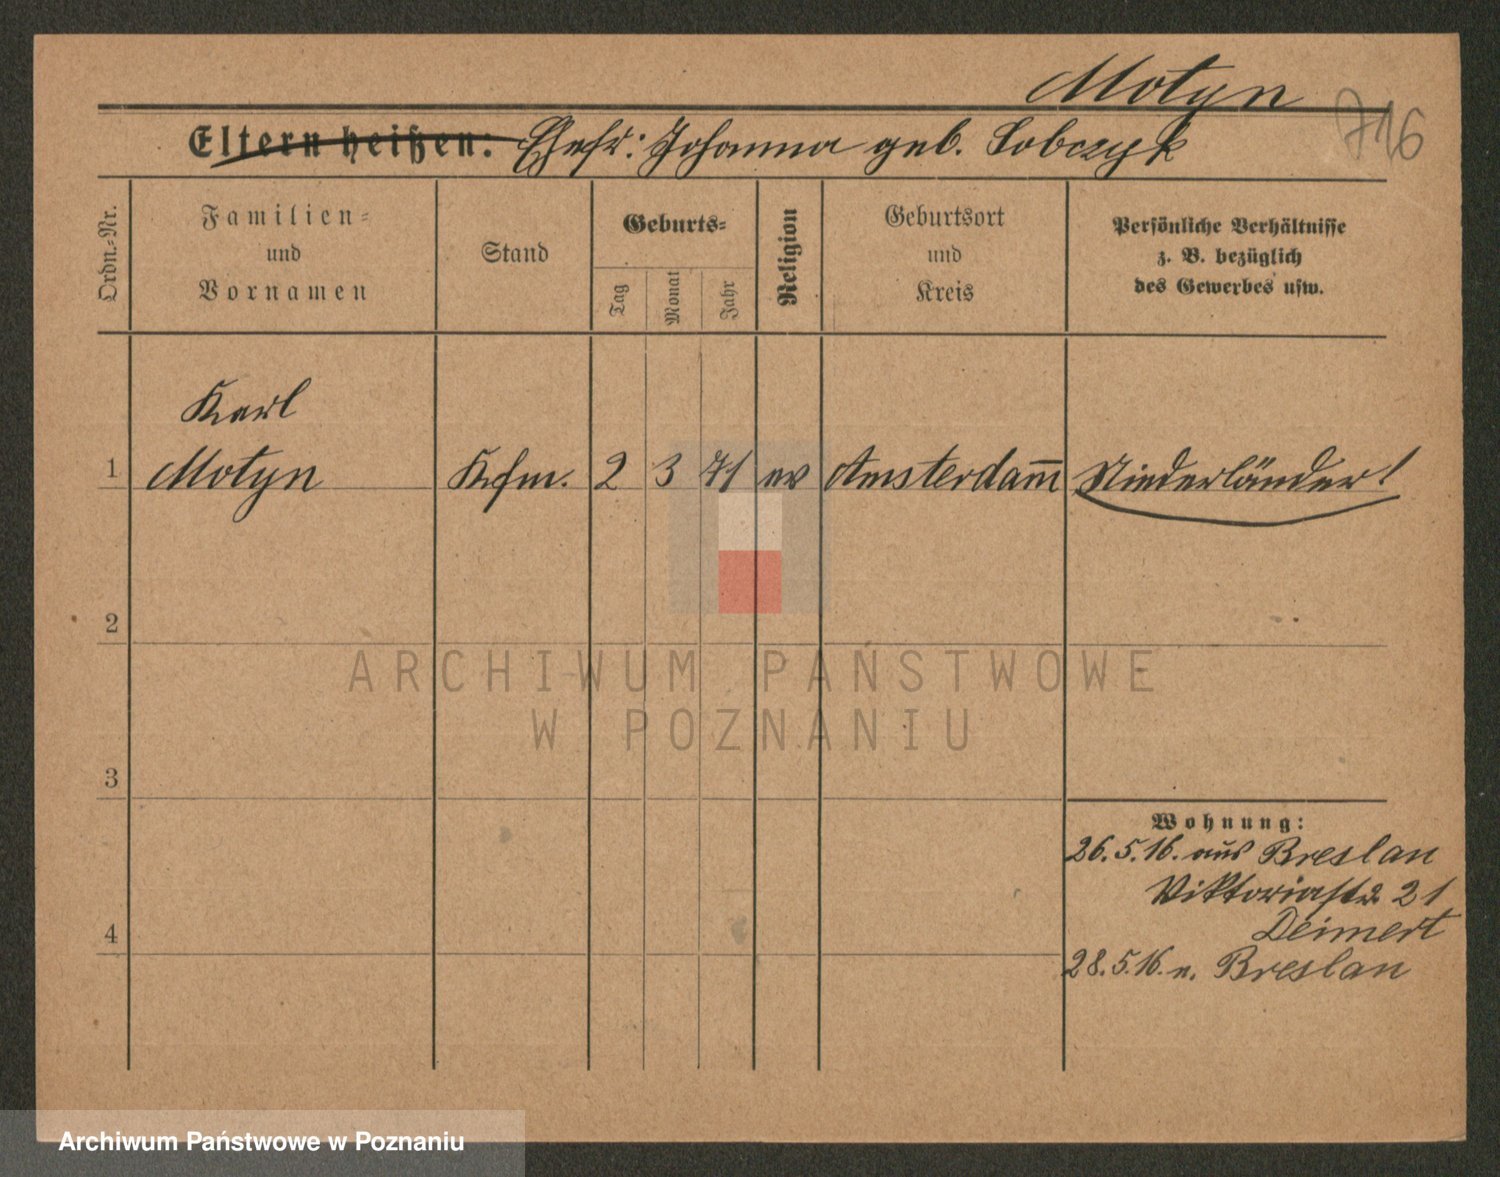 Motyn
716
Eltern heißen: Ehefr: Johanna geb. Sobczyk
Ordn.-Nr.
Familien-
und
Vornamen
Stand
Geburts-
Tag
Monat
Jahr
Religion
Geburtsort
und
Kreis
Persönliche Verhältnisse
z. B. bezüglich
des Gewerbes usw.
Karl
1 Motyn Kfm. 2 3 71 ev Amsterdam̅ Niederländer!
2
3
4
Wohnung:
26.5.16. aus Breslau
Viktoriastr 21
Deimert
28.5.16. n. Breslau
ARCHIWUM PAŃSTWOWE
W POZNANIU
Archiwum Państwowe w Poznaniu